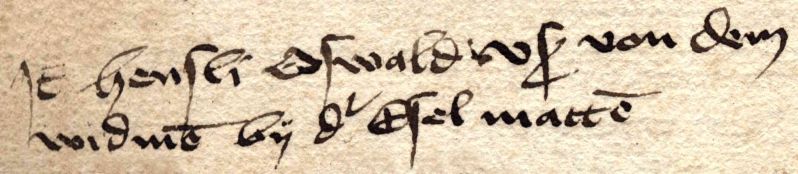 It hensli Oswald v ß von dem
widme bÿ dr Esel matte